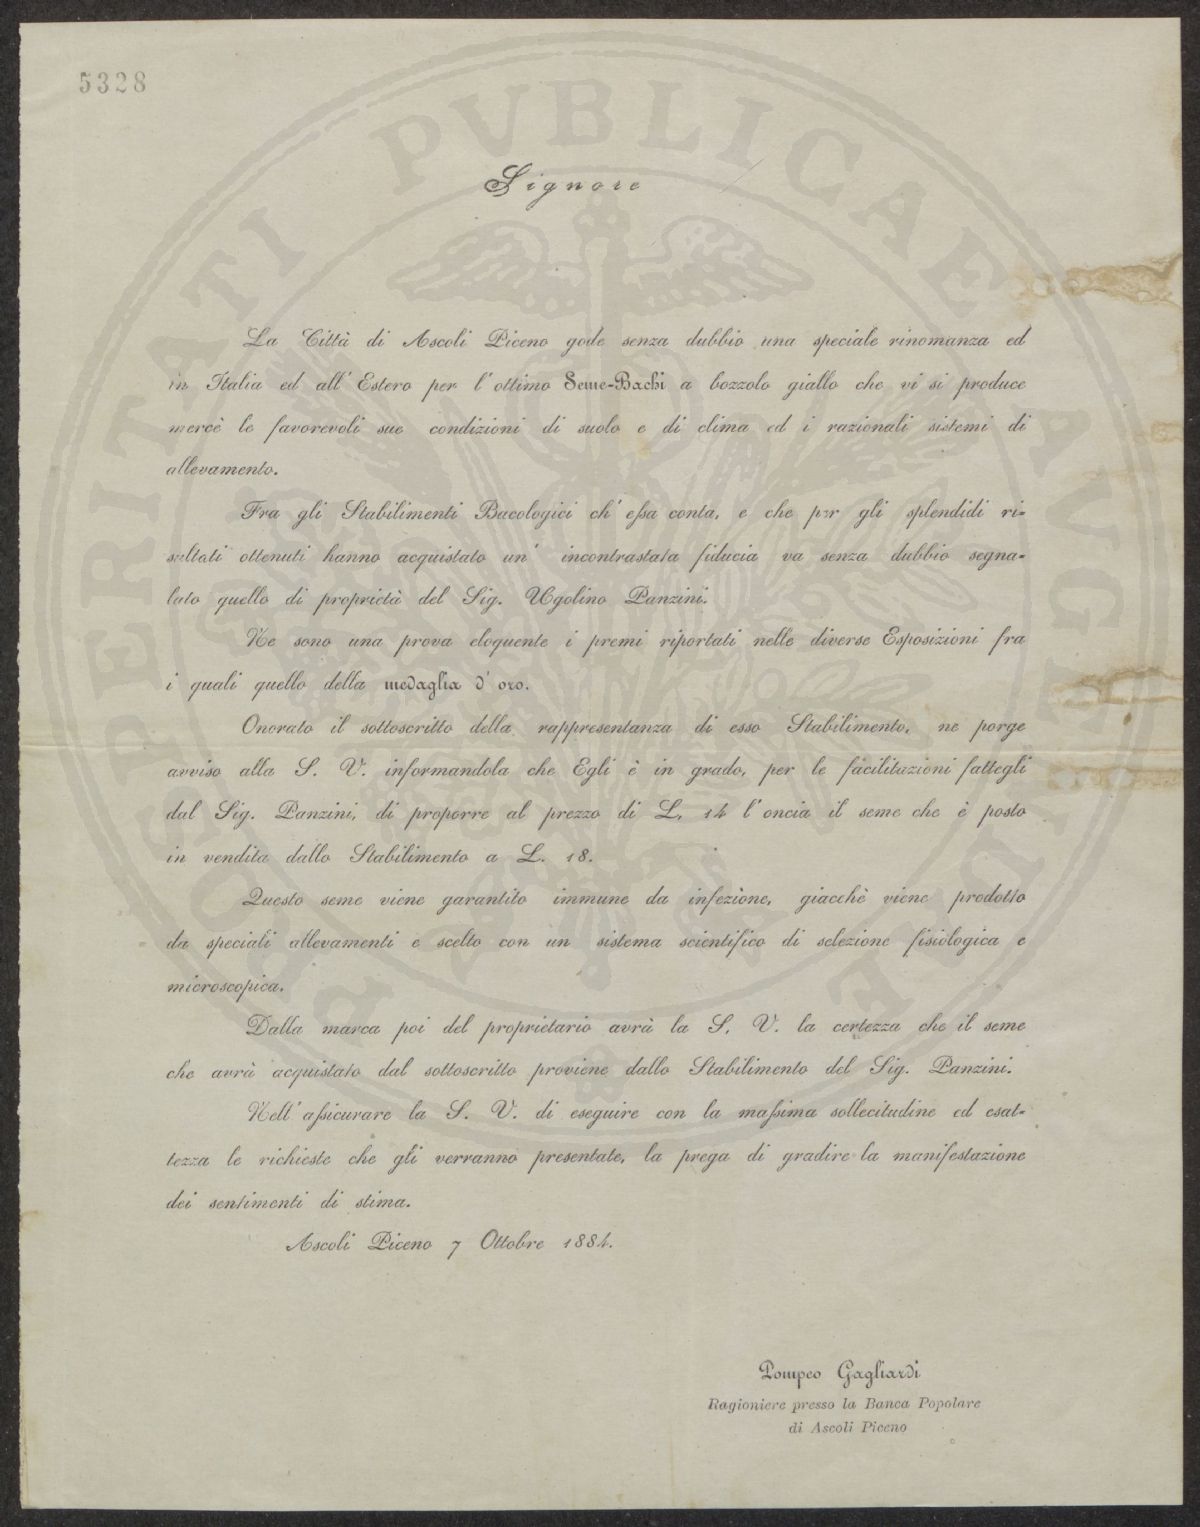 5328
PROSPERITATI PVBLICAE AVGENDAE
Signore
La Città di Ascoli Piceno gode senza dubbio una speciale rinomanza ed
in Italia ed all' Estero per l' ottimo Seme-Bachi a bozzolo giallo che vi si produce
mercè le favorevoli sue condizioni di suolo e di clima ed i razionali sistemi di
allevamento.
Fra gli Stabilimenti Bacologici ch' essa conta, e che per gli splendidi ri-
sultati ottenuti hanno acquistato un' incontrastata fiducia va senza dubbio segna-
lato quello di proprietà del Sig. Ugolino Panzini.
Ne sono una prova eloquente i premi riportati nelle diverse Esposizioni fra
i quali quello della medaglia d' oro.
Onorato il sottoscritto della rappresentanza di esso Stabilimento, ne porge
avviso alla S. V. informandola che Egli è in grado, per le facilitazioni fattegli
dal Sig. Panzini, di proporre al prezzo di L. 14 l' oncia il seme che è posto
in vendita dallo Stabilimento a L. 18.
Questo seme viene garantito immune da infezione, giacchè viene prodotto
da speciali allevamenti e scelto con un sistema scientifico di selezione fisiologica e
microscopica.
Dalla marca poi del proprietario avrà la S. V. la certezza che il seme
che avrà acquistato dal sottoscritto proviene dallo Stabilimento del Sig. Panzini.
Nell' assicurare la S. V. di eseguire con la massima sollecitudine ed esat-
tezza le richieste che gli verranno presentate, la prega di gradire la manifestazione
dei sentimenti di stima.
Ascoli Piceno 7 Ottobre 1884.
Pompeo Gagliardi
Ragioniere presso la Banca Popolare
di Ascoli Piceno